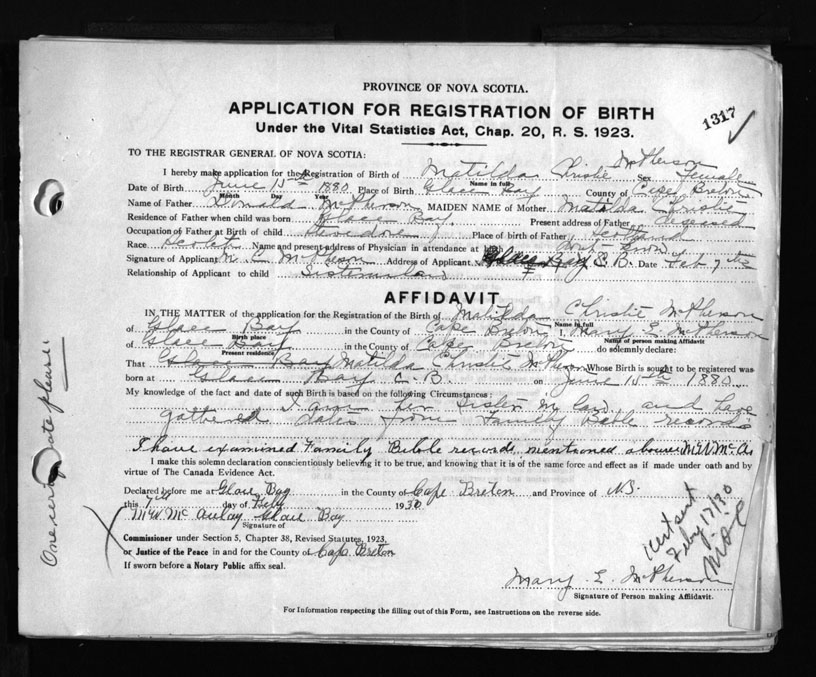 PROVINCE OF NOVA SCOTIA.
APPLICATION FOR REGISTRATION OF BIRTH
Under the Vital Statistics Act, Chap. 20, R. S. 1923.
1317
TO THE REGISTRAR GENERAL OF NOVA SCOTIA:
I hereby make application for the Registration of Birth of Matilda Christie McPherson Sex Female
Name in full
Date of Birth June 15th 1880 Place of Birth Glace Bay County of Cape Breton
Month Day Year
Name of Father Donald McPherson MAIDEN NAME of Mother Matilda Christie
Residence of Father when child was born Glace Bay Present address of Father Deceased
Occupation of Father at Birth of child Stevedore Place of birth of Father Scotland
Race Scotch Name and present address of Physician in attendance at birth
Signature of Applicant M. E. McPherson Address of Applicant Glace Bay C. B. Date Feb 7th
Relationship of Applicant to child Sister in law
AFFIDAVIT
IN THE MATTER of the application for the Registration of the Birth of Matilda Christie McPherson
Name in full
of Glace Bay in the County of Cape Breton I, Mary E. McPherson
Birth place Name of person making Affidavit
of Glace Bay in the County of Cape Breton do solemnly declare:
Present residence
That Glace Bay Matilda Christie McPherson Whose Birth is sought to be registered was
born at Glace Bay C. B. on June 15th 1880.
My knowledge of the fact and date of such Birth is based on the following Circumstances:
I am her sister in law and have
gathered dates from Family Bible records
I have examined Family Bible records mentioned above M.W. McA.
I make this solemn declaration conscientiously believing it to be true, and knowing that it is of the same force and effect as if made under oath and by
virtue of The Canada Evidence Act.
Declared before me at Glace Bay in the County of Cape Breton and Province of N.S.
this 7th day of Feby 1930
M W McAulay Glace Bay
Signature of
Commissioner under Section 5, Chapter 38, Revised Statutes, 1923,
or Justice of the Peace in and for the County of Cape Breton
If sworn before a Notary Public affix seal.
Mary E. McPherson
Signature of Person making Affidavit.
For Information respecting the filling out of this Form, see Instructions on the reverse side.
One certificate please
Cert sent
Feby 17/30